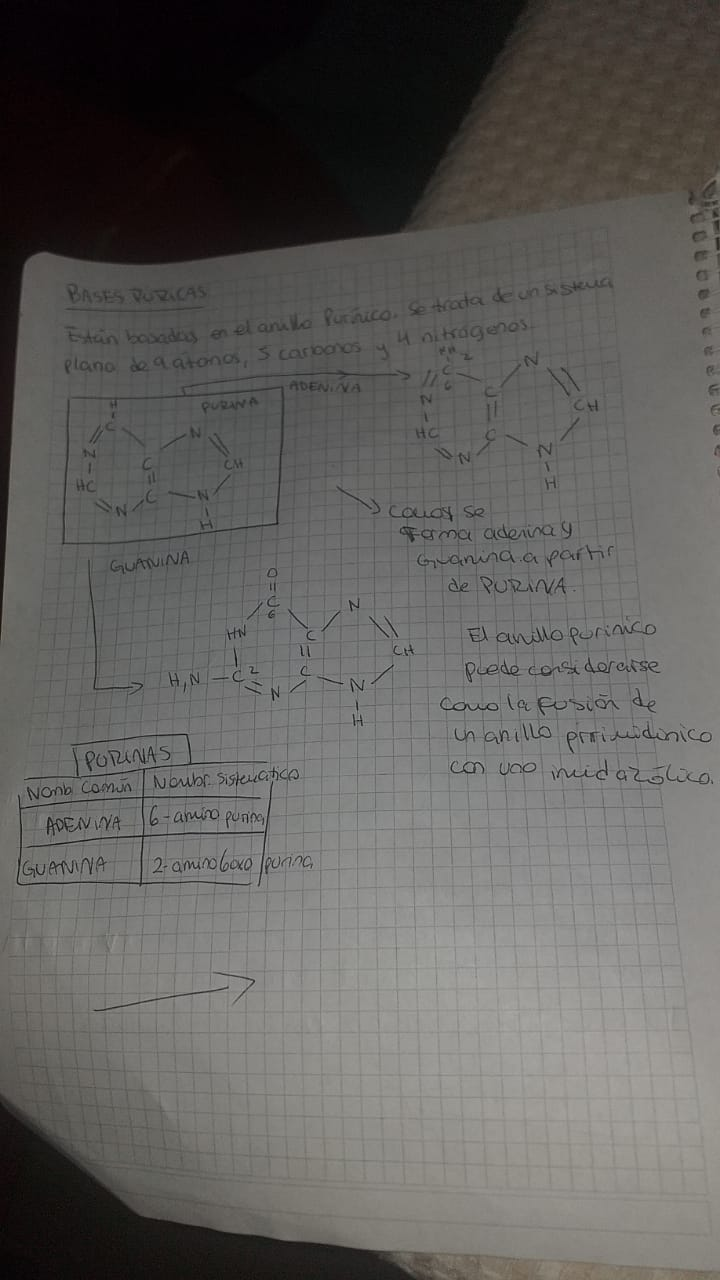 BASES PURICAS
Están basadas en el anillo Purínico. Se trata de un sistema
plano de 9 átomos, 5 carbonos y 4 nitrógenos.
ADENINA
PURINA
H
C
N
HC
N
C
C
N
CH
N
H
NH2
C
6
N
HC
N
C
C
N
CH
N
H
se
forma adenina y
Guanina a partir
de PURINA.
GUANINA
O
C
6
HN
H2N
C 2
N
C
C
N
CH
N
H
El anillo purinico
puede considerarse
como la fusión de
un anillo
con uno imidazólico.
PURINAS
Nomb Común Nombr. sistematico
ADENINA 6-amino purina
GUANINA 2-amino 6oxo purina